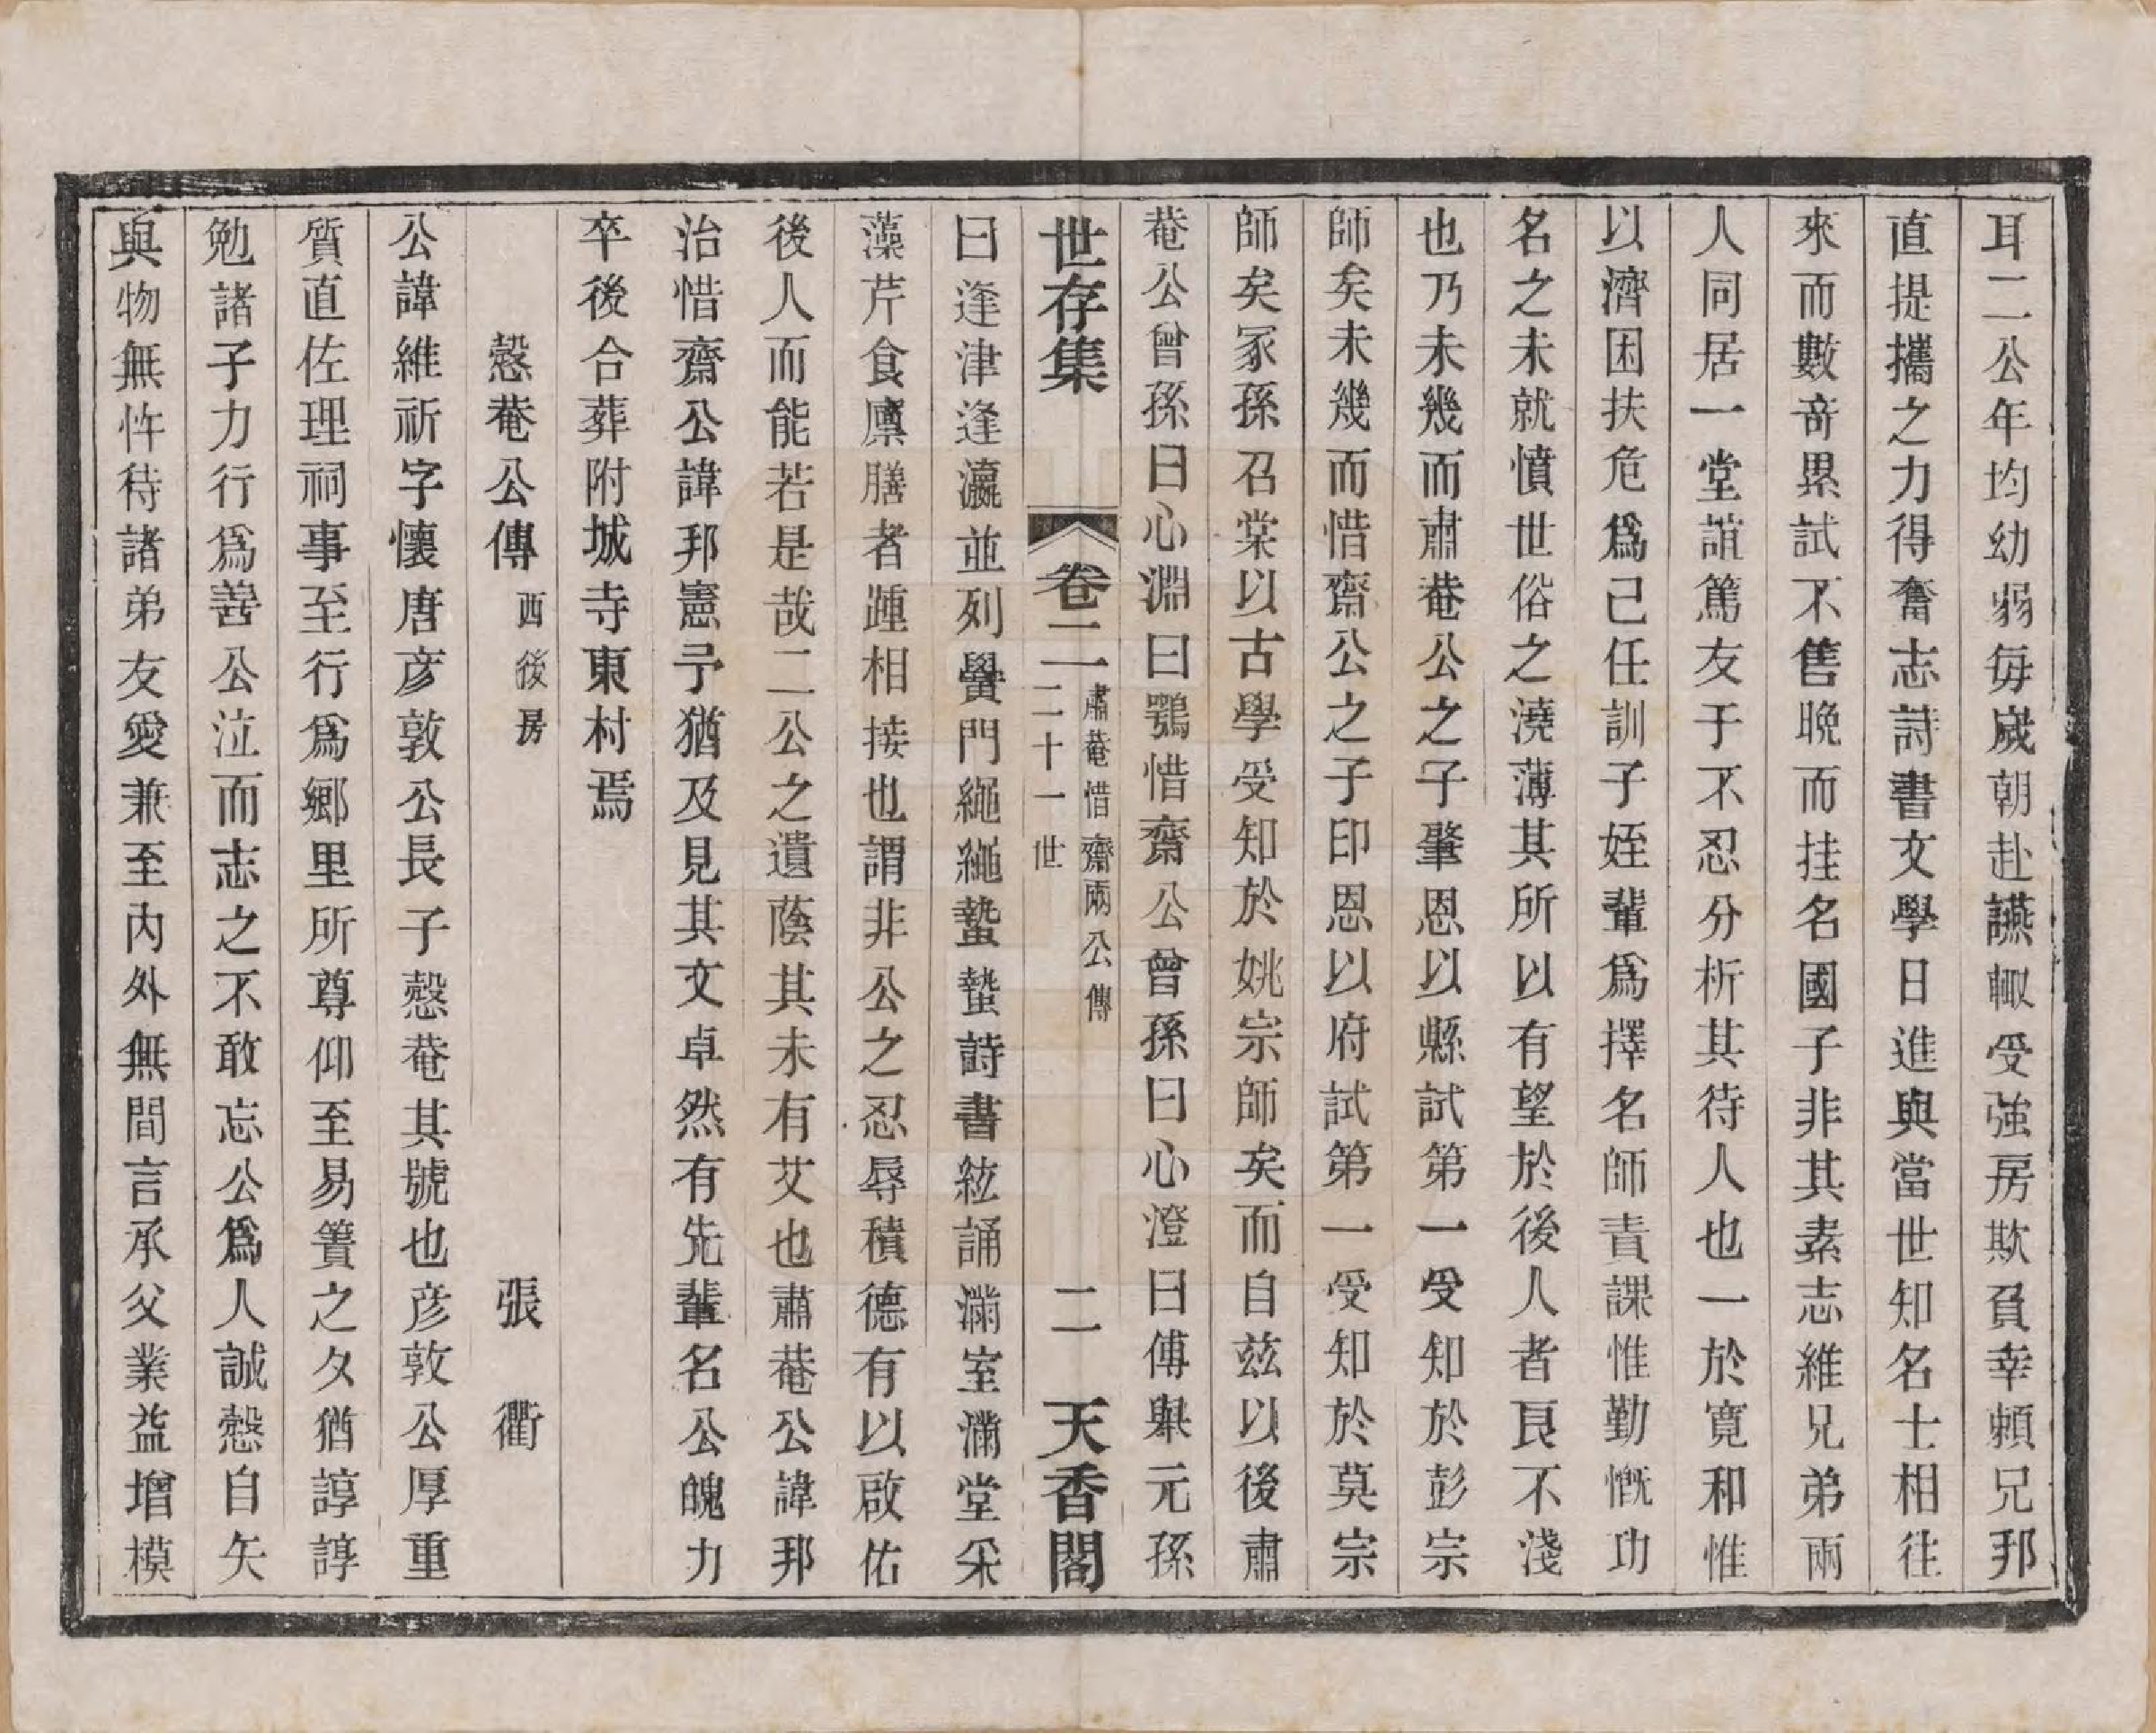 耳二公年均幼弱每歲朝赴讌輙受強房欺負幸賴兄邦
直提攜之力得奮志詩書文學日進與當世知名士相往
來而數奇累試不售晚而挂名國子非其素志維兄弟兩
人同居一堂誼篤友于不忍分析其待人也一於寬和惟
以濟困扶危爲己任訓子姪輩爲擇名師責課惟勤慨功
名之未就憤世俗之澆薄其所以有望於後人者良不淺
也乃未幾而肅菴公之子肇恩以縣試第一受知於彭宗
師矣未幾而惜齋公之子印恩以府試第一受知於莫宗
師矣冢孫召棠以古學受知於姚宗師矣而自茲以後肅
菴公曾孫曰心淵曰鶚惜齋公曾孫曰心澄曰傅櫐元孫
世存集 卷二 肅菴惜齋兩公傳 二十一世 二 天香閣
曰逢津逢瀛並列黌門繩繩蟄蟄詩書絃誦滿室滿堂采
藻芹食廩膳者踵相接也謂非公之忍辱積德有以啟佑
後人而能若是哉二公之遺蔭其未有艾也肅菴公諱邦
治惜齋公諱邦憲予猶及見其文卓然有先輩名公魄力
卒後合葬附城寺東村焉
慤菴公傳 西後房 張衢
公諱維祈字懷唐彦敦公長子慤菴其號也彦敦公厚重
質直佐理祠事至行爲郷里所尊仰至易簀之夕猶諄諄
勉諸子力行爲善公泣而志之不敢忘公爲人誠慤自矢
與物無忤待諸弟友愛兼至內外無間言承父業益增模